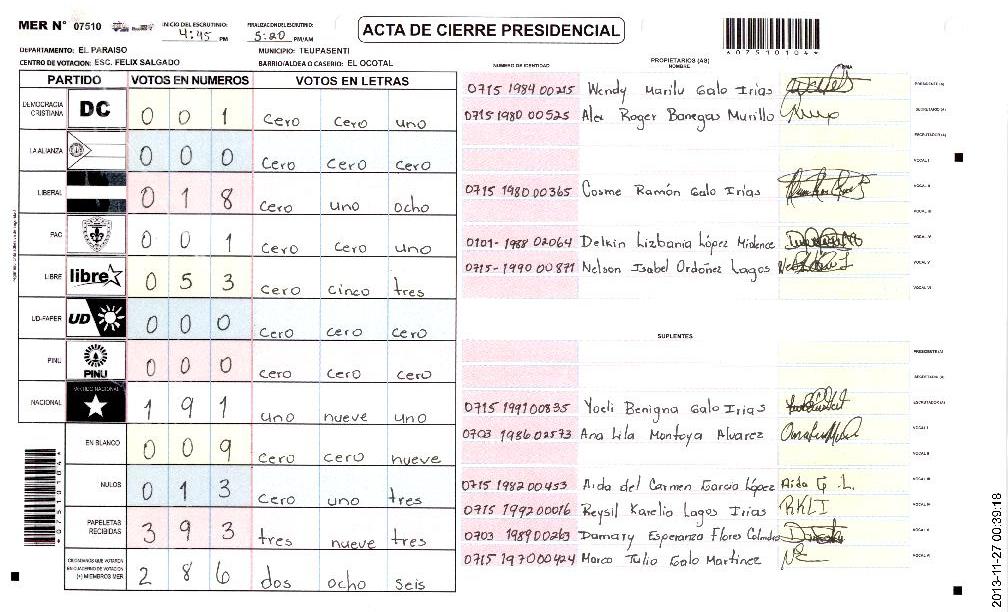 MER N° 07510 INICIO DEL ESCRUTINIO: 4:45 PM FINALIZACION DEL ESCRUTINIO: 5:20 PM/AM
ACTA DE CIERRE PRESIDENCIAL
*07510104*
DEPARTAMENTO: EL PARAISO MUNICIPIO: TEUPASENTI
CENTRO DE VOTACION: ESC. FELIX SALGADO BARRIO/ALDEA O CASERIO: EL OCOTAL
PARTIDO VOTOS EN NUMEROS VOTOS EN LETRAS
DEMOCRACIA CRISTIANA DC 0 0 1 cero cero uno
LA ALIANZA 0 0 0 cero cero cero
LIBERAL 0 1 8 cero uno ocho
PAC 0 0 1 cero cero uno
LIBRE libre 0 5 3 cero cinco tres
UD-FAPER UD 0 0 0 cero cero cero
PINU PINU 0 0 0 cero cero cero
NACIONAL PARTIDO NACIONAL 1 9 1 uno nueve uno
EN BLANCO 0 0 9 cero cero nueve
NULOS 0 1 3 cero uno tres
PAPELETAS RECIBIDAS 3 9 3 tres nueve tres
CIUDADANOS QUE VOTARON EN CUADERNO DE VOTACION (+) MIEMBROS MER 2 8 6 dos ocho seis
*07510104*
PROPIETARIOS (AS)
NUMERO DE IDENTIDAD NOMBRE
0715 1984 00215 Wendy Marilu Galo Irias PRESIDENTE (A)
0715 1980 00525 Alex Roger Banegas Murillo SECRETARIO (A)
ESCRUTADOR (A)
VOCAL I
0715 1980 00365 Cosme Ramón Galo Irias VOCAL II
VOCAL III
0101-1988 02064 Delkin Lizbania López Midence VOCAL IV
0715-1990 00871 Nelson Isabel Ordóñez Lagos VOCAL V
VOCAL VI
SUPLENTES
PRESIDENTE (A)
SECRETARIO (A)
0715 1991 00835 Yoeli Benigna Galo Irias ESCRUTADOR (A)
0703 1986 02573 Ana Lila Montoya Alvarez VOCAL I
VOCAL II
0715 1982 00453 Aida del Carmen Garcia López Aida G. L. VOCAL III
0715 1992 00016 Reysil Karelio Lagos Irias RKLI VOCAL IV
0703 1989 00263 Damary Esperanza Flores VOCAL V
0715 1970 00424 Marco Tulio Galo Martinez VOCAL VI
2013-11-27 00:39:18